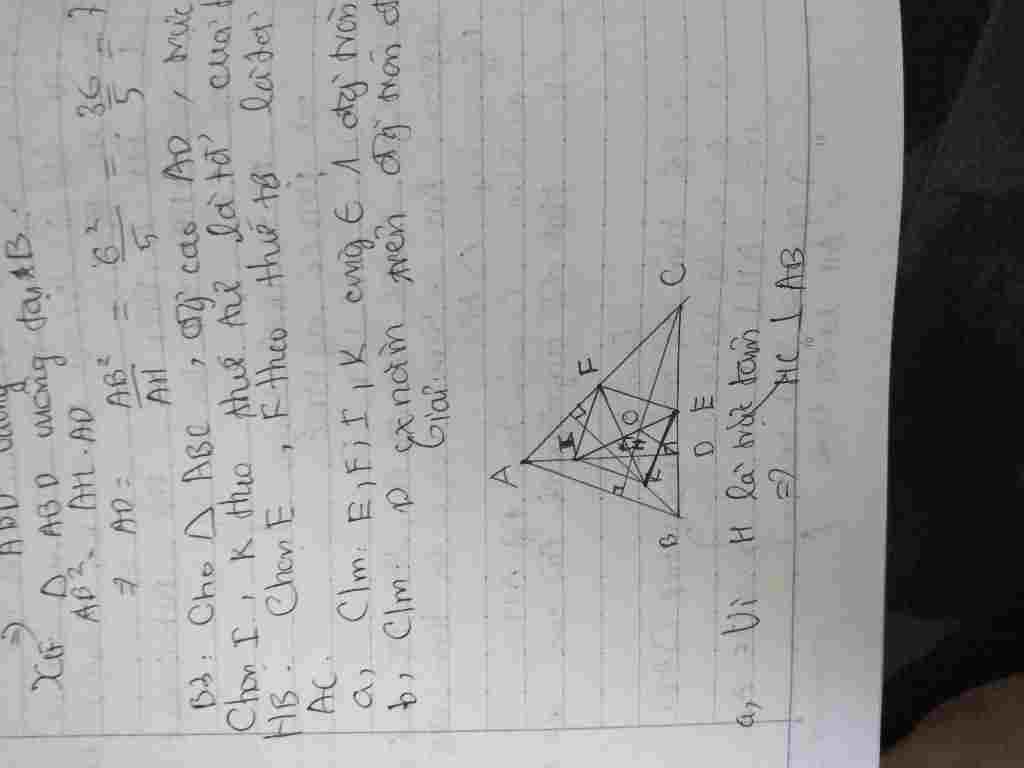 =) ABD vuông
Xét Δ ABD vuông tại AB.
AB² = AH.AD
=> AD = AB²/AH = 6²/5 = 36/5 = 7
B3: Cho Δ ABC, đg cao AD, trực
Chọn I, K theo thứ tự là tđ của
HB. Chọn E, F theo thứ tự là tđ
AC.
a, C/m: E, F, I, K cùng ∈ 1 đg tròn
b, C/m: D nằm trên đg tròn đ
Giải:
A
F
I
O
H
K
B
D
E
C
a, Vì H là trực tâm
=) HC ⊥ AB